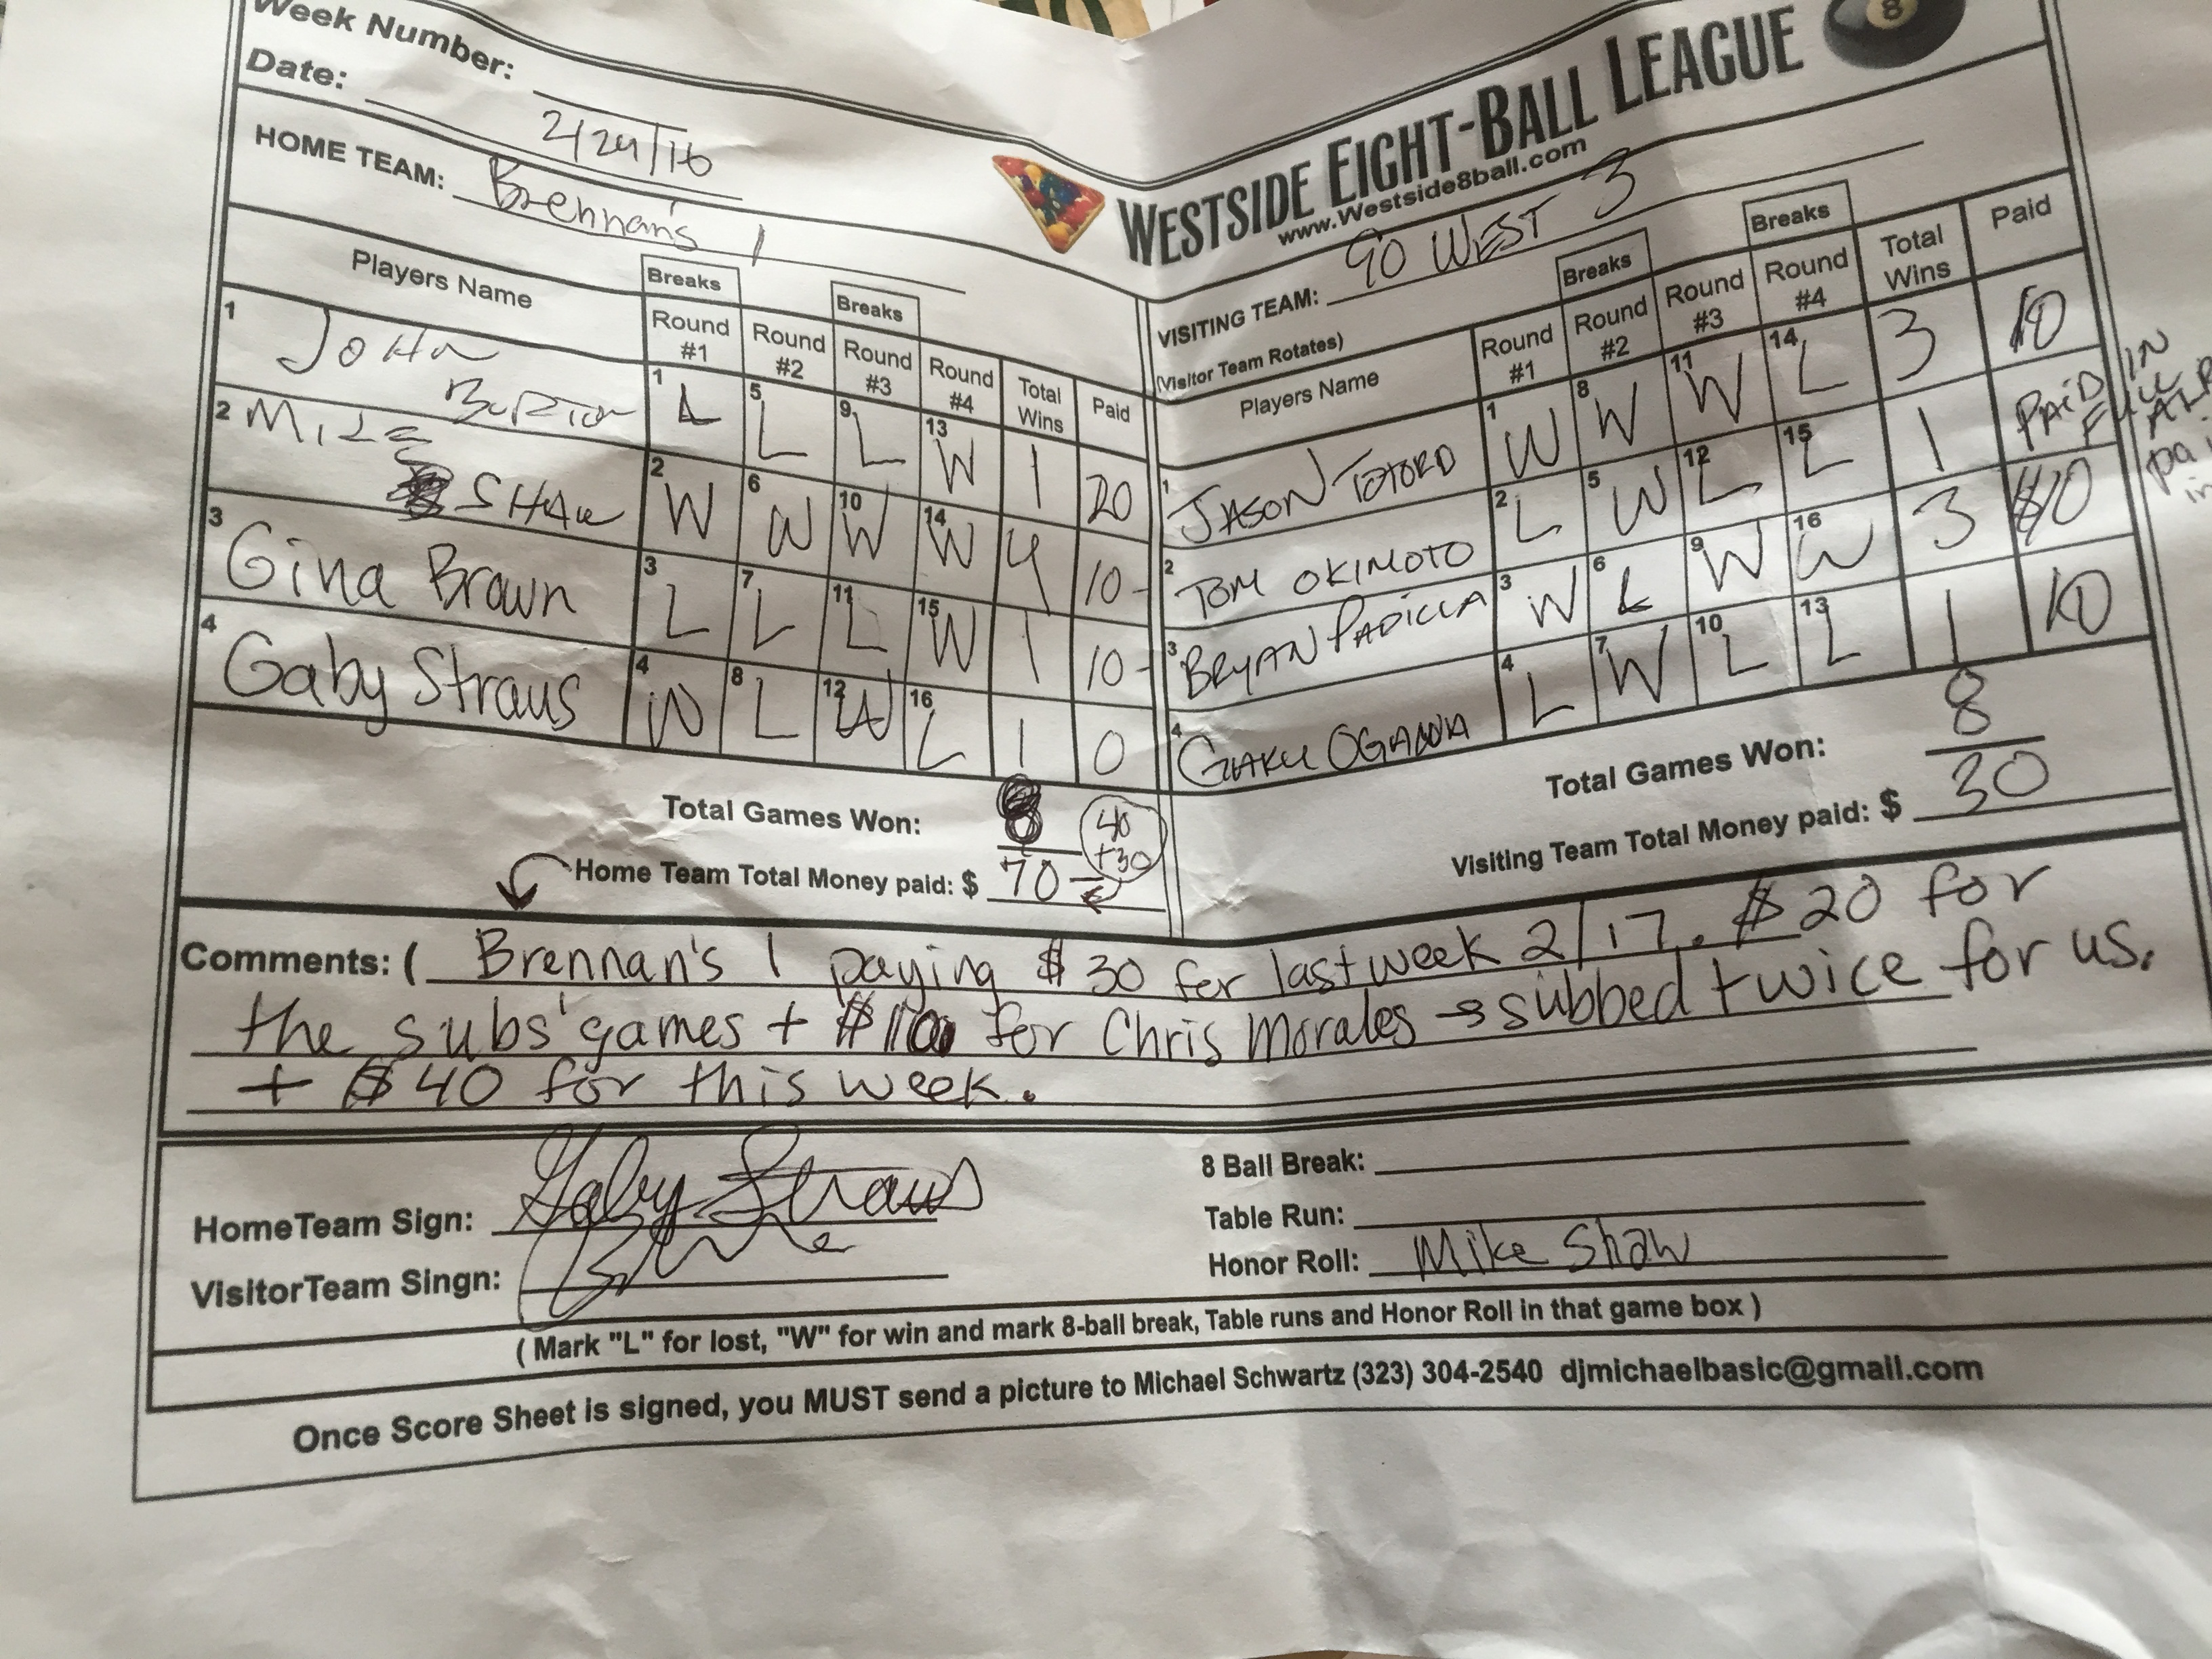 Week Number:
Date: 2/24/16
WESTSIDE EIGHT-BALL LEAGUE
8
www.Westside8ball.com
HOME TEAM: Brennan's 1
VISITING TEAM: 90 WEST 3
(Visitor Team Rotates)
Players Name Breaks Round #1 Round #2 Breaks Round #3 Round #4 Total Wins Paid
1 JOHN BURTON 1 L 5 L 9 L 13 W 1 20
2 MIKE SHAW 2 W 6 W 10 W 14 W 4 10-
3 Gina Brown 3 L 7 L 11 L 15 W 1 10-
4 Gaby Straus 4 W 8 L 12 W 16 L 1 0
Total Games Won: 8
40
+30
Home Team Total Money paid: $ 70
Players Name Round #1 Breaks Round #2 Round #3 Breaks Round #4 Total Wins Paid
1 JASON 1 W 8 W 11 W 14 L 3 10
2 TOM OKIMOTO 2 L 5 W 12 L 15 L 1 PAID IN FULL
3 BRYAN PADILLA 3 W 6 L 9 W 16 W 3 $10
4 GAKU OGAWA 4 L 7 W 10 L 13 L 1 10
Total Games Won: 8
Visiting Team Total Money paid: $ 30
Comments: ( Brennan's 1 paying $30 for last week 2/17. $20 for
the subs' games + $10 for Chris Morales → subbed twice for us.
+ $40 for this week.
HomeTeam Sign: Gaby Straus
VisitorTeam Singn:
8 Ball Break:
Table Run:
Honor Roll: Mike Shaw
( Mark "L" for lost, "W" for win and mark 8-ball break, Table runs and Honor Roll in that game box )
Once Score Sheet is signed, you MUST send a picture to Michael Schwartz (323) 304-2540 djmichaelbasic@gmail.com